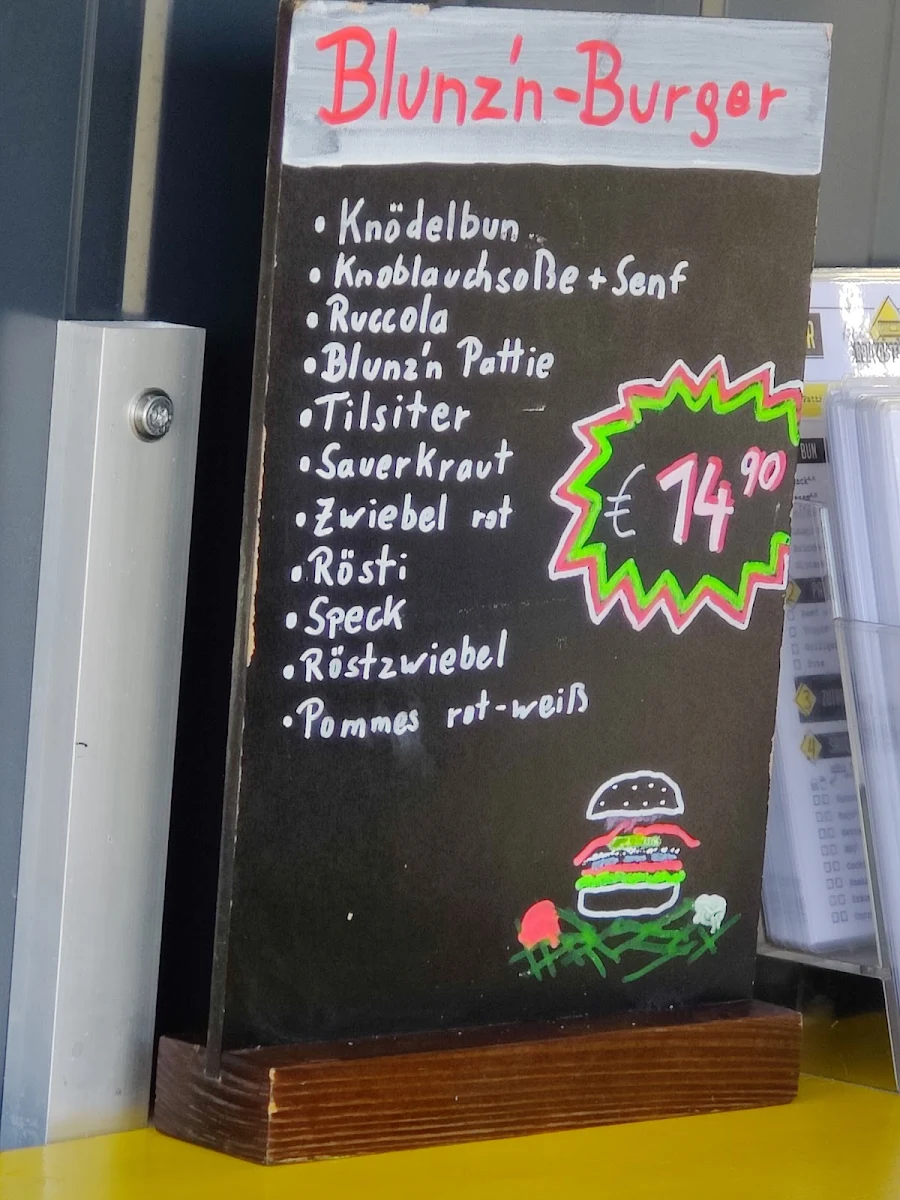 Blunz'n-Burger
• Knödelbun
• Knoblauchsoße + Senf
• Ruccola
• Blunz'n Pattie
• Tilsiter
• Sauerkraut
• Zwiebel rot
• Rösti
• Speck
• Röstzwiebel
• Pommes rot-weiß
€ 14 90
BUN